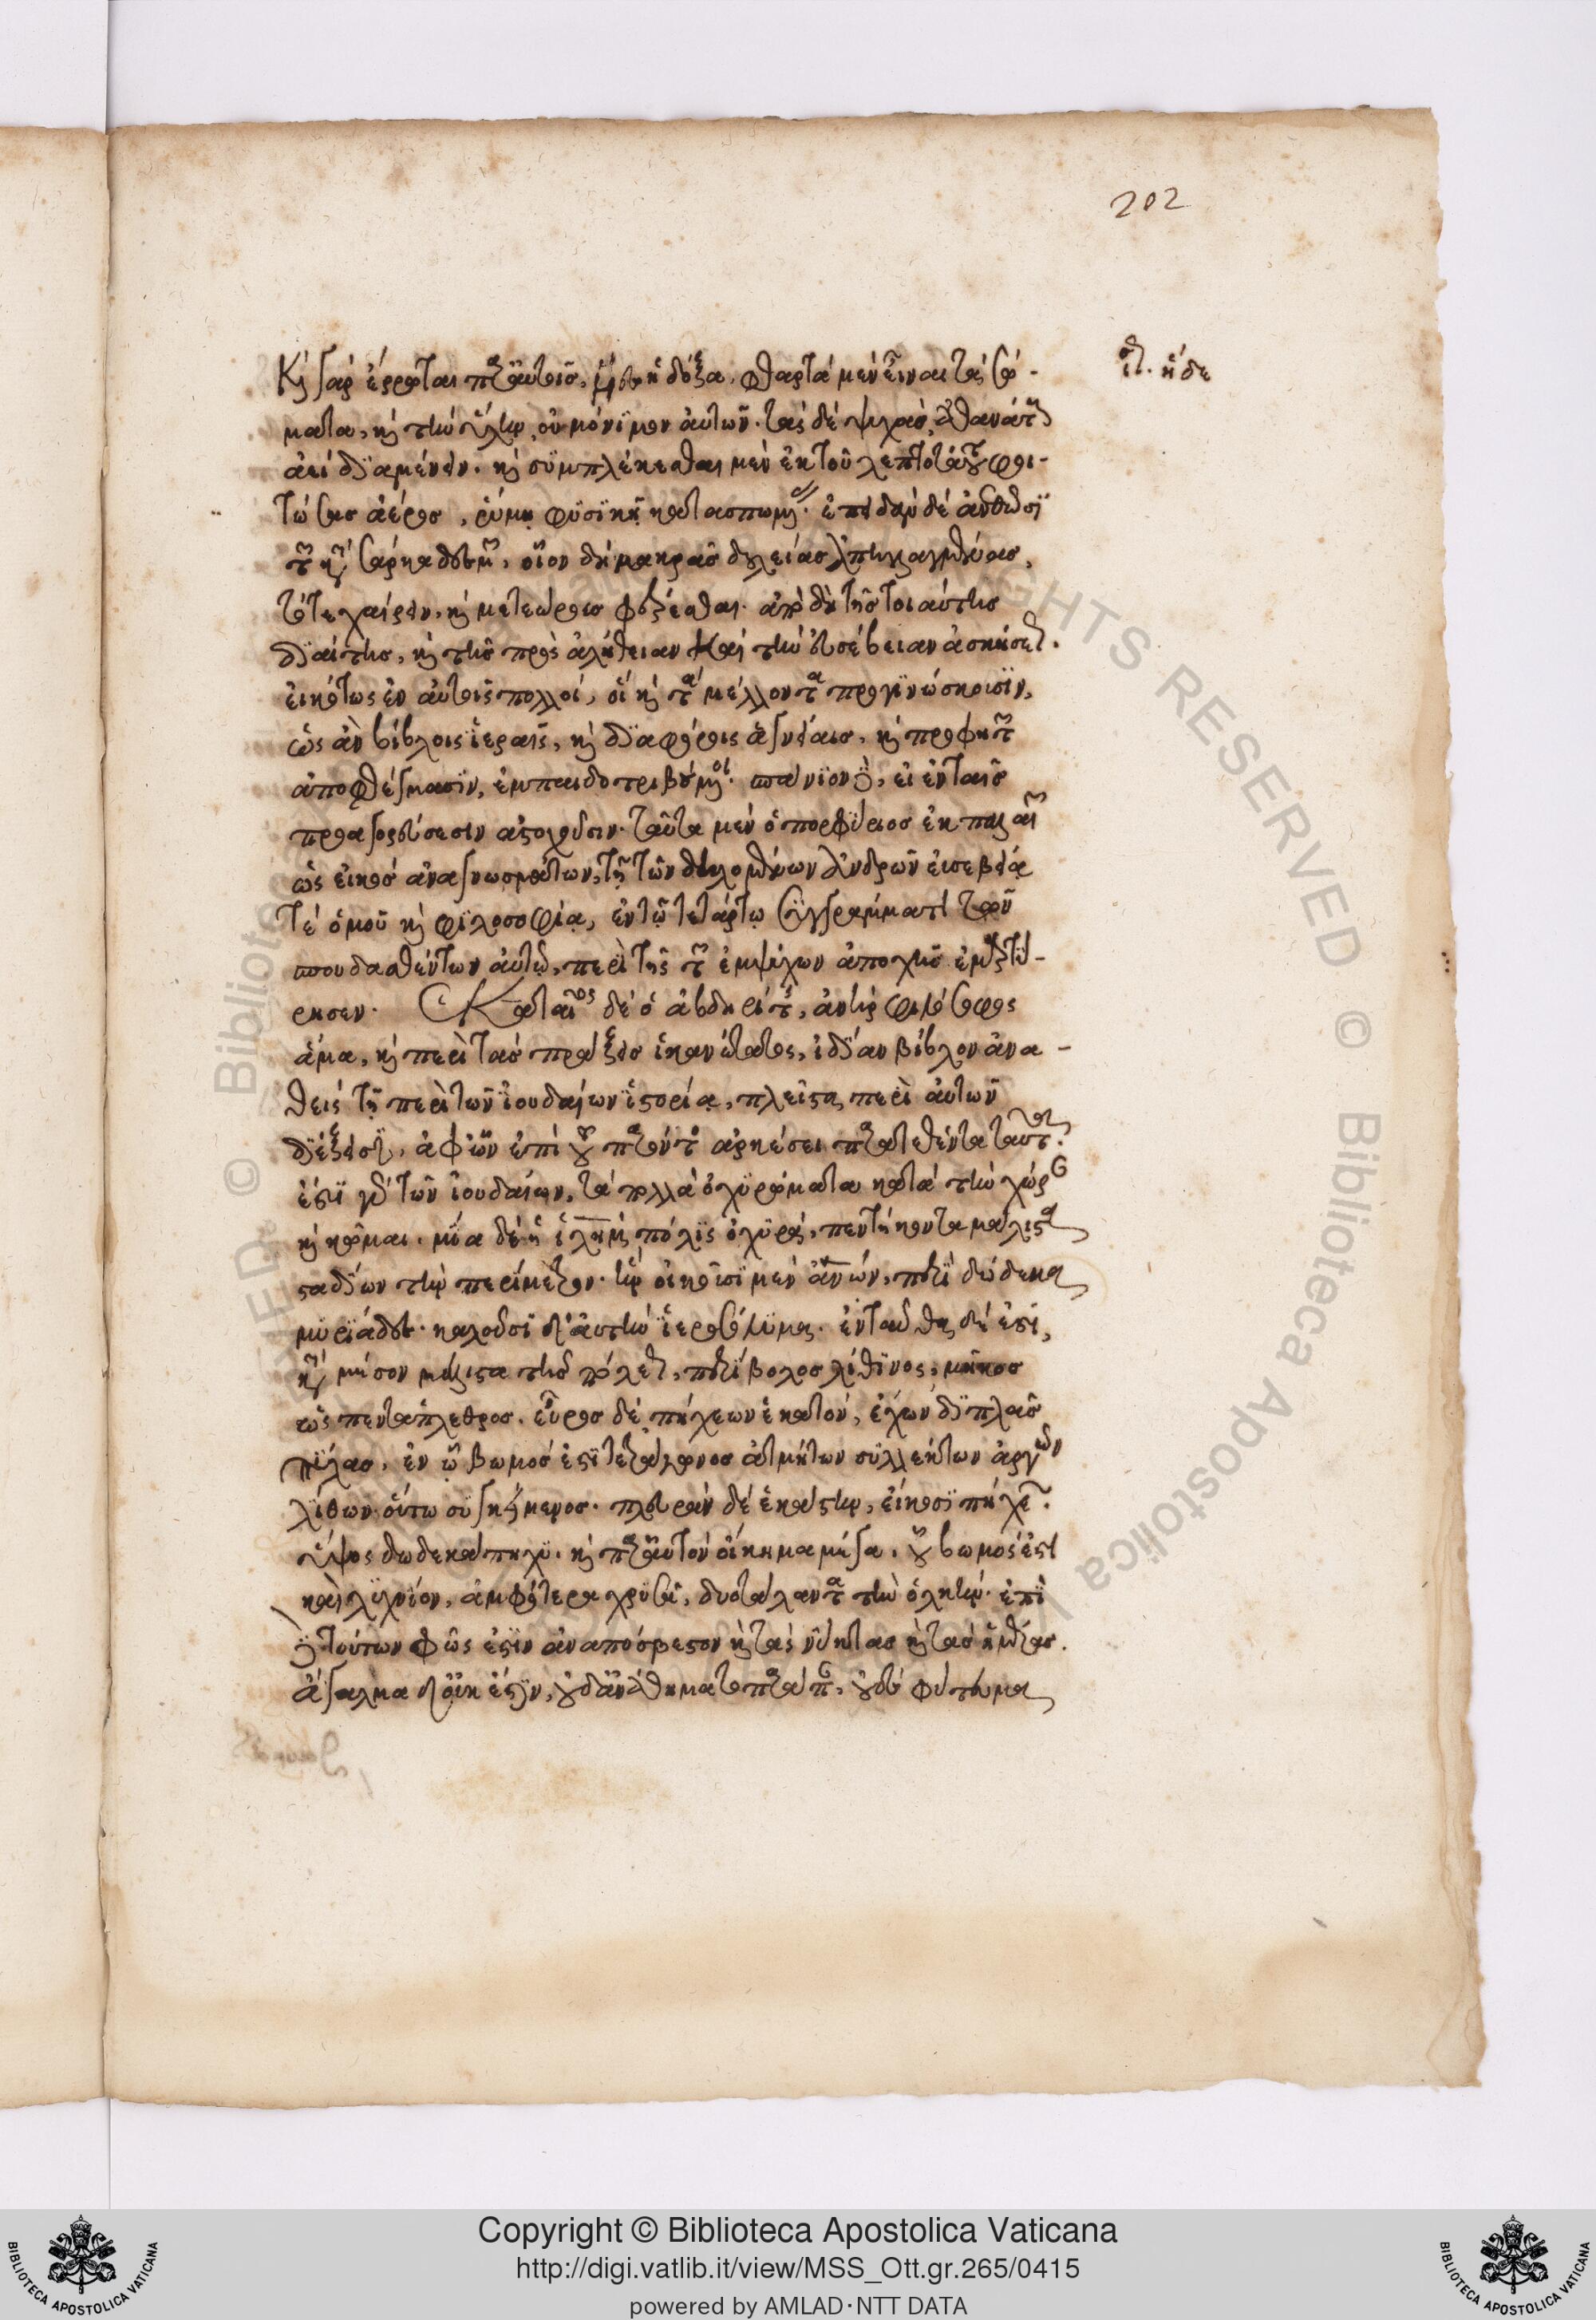 202
Καὶ γὰρ ἔρρωται παρ' αὐτοῖς, ἥδε ἡ δόξα, φθαρτὰ μὲν εἶναι τὰ σώ-
ὅτι. ἥδε
ματα, καὶ τὴν ὕλην οὐ μόνιμον αὐτῶν. τὰς δὲ ψυχὰς ἀθανάτους
ἀεὶ διαμένειν. καὶ συμπλέκεσθαι μὲν ἐκ τοῦ λεπτοτάτου φοι-
τώσας ἀέρος, ῥύμῃ φυσικῇ κατασπωμένας. ἐπειδὰν δὲ ἀνεθῶσι
τῶν κατὰ σάρκα δεσμῶν, οἷον δὴ μακρᾶς δουλείας ἀπηλλαγμένας,
τότε χαίρειν, καὶ μετεώρους φέρεσθαι. ἀπὸ δὴ τῆς τοιαύτης
διαίτης, καὶ τῆς πρὸς ἀλήθειαν καὶ τὴν εὐσέβειαν ἀσκήσεως.
εἰκότως ἐν αὐτοῖς πολλοί, οἳ καὶ τὰ μέλλοντα προγινώσκουσιν,
ὡς ἂν βίβλοις ἱεραῖς, καὶ διαφόροις ἁγνείαις, καὶ προφητῶν
ἀποφθέγμασιν, ἐμπαιδοτριβούμενοι. σπάνιον δὲ, εἰ ἐν ταῖς
προαγορεύσεσιν ἀστοχοῦσιν. ταῦτα μὲν ὁ πορφύριος ἐκ παλαιῶν
ὡς εἰκὸς ἀναγνωσμάτων, τῇ τῶν δηλουμένων ἀνδρῶν εὐσεβείᾳ
τε ὁμοῦ καὶ φιλοσοφίᾳ, ἐν τῷ τετάρτῳ συγγράμματι τῶν
σπουδασθέντων αὐτῷ, περὶ τῆς τῶν ἐμψύχων ἀποχῆς ἐμαρτύ-
ρησεν. Ἑκαταῖος δὲ ὁ ἀβδηρίτης, ἀνὴρ φιλόσοφος
ἅμα, καὶ περὶ τὰς πράξεις ἱκανώτατος, ἰδίαν βίβλον ἀνα-
θεὶς τῇ περὶ τῶν ἰουδαίων ἱστορίᾳ, πλεῖστα περὶ αὐτῶν
διέξεισι, ἀφ' ὧν ἐπὶ τοῦ παρόντος ἀρκέσει παρατεθέντα ταῦτα.
ἔστι γὰρ τῶν ἰουδαίων, τὰ πολλὰ ὀχυρώματα κατὰ τὴν χώραν
καὶ κῶμαι. μία δὲ ἡ πόλις ὀχυρά, πεντήκοντα μάλιστα
σταδίων τὴν περίμετρον. ἣν οἰκοῦσι μὲν ἀνθρώπων, περὶ δώδεκα
μυριάδες. καλοῦσι δ' αὐτὴν ἱεροσόλυμα. ἐνταῦθα δέ ἐστι,
κατὰ μέσον μάλιστα τῆς πόλεως, περίβολος λίθινος, μῆκος
ὡς πεντάπλεθρος. εὖρος δὲ πήχεων ἑκατόν, ἔχων διπλᾶς
πύλας, ἐν ᾧ βωμός ἐστι τετράγωνος ἀτμήτων συλλέκτων ἀργῶν
λίθων οὕτω συγκείμενος. πλευρὰν δὲ ἑκάστην, εἴκοσι πήχεων.
ὕψος δωδεκάπηχυ. καὶ παρ' αὐτὸν οἴκημα μέγα. οὗ βωμός ἐστι
καὶ λυχνίον, ἀμφότερα χρυσᾶ, δυοτάλαντα τὴν ὁλκήν. ἐπὶ
δὲ τούτων φῶς ἐστιν ἀναπόσβεστον καὶ τὰς νύκτας καὶ τὰς ἡμέρας.
ἄγαλμα δ' οὐκ ἔστιν, οὐδ' ἀνάθημα τὸ παράπαν, οὐδὲ φύτευμα
Copyright © Biblioteca Apostolica Vaticana
http://digi.vatlib.it/view/MSS_Ott.gr.265/0415
powered by AMLAD·NTT DATA